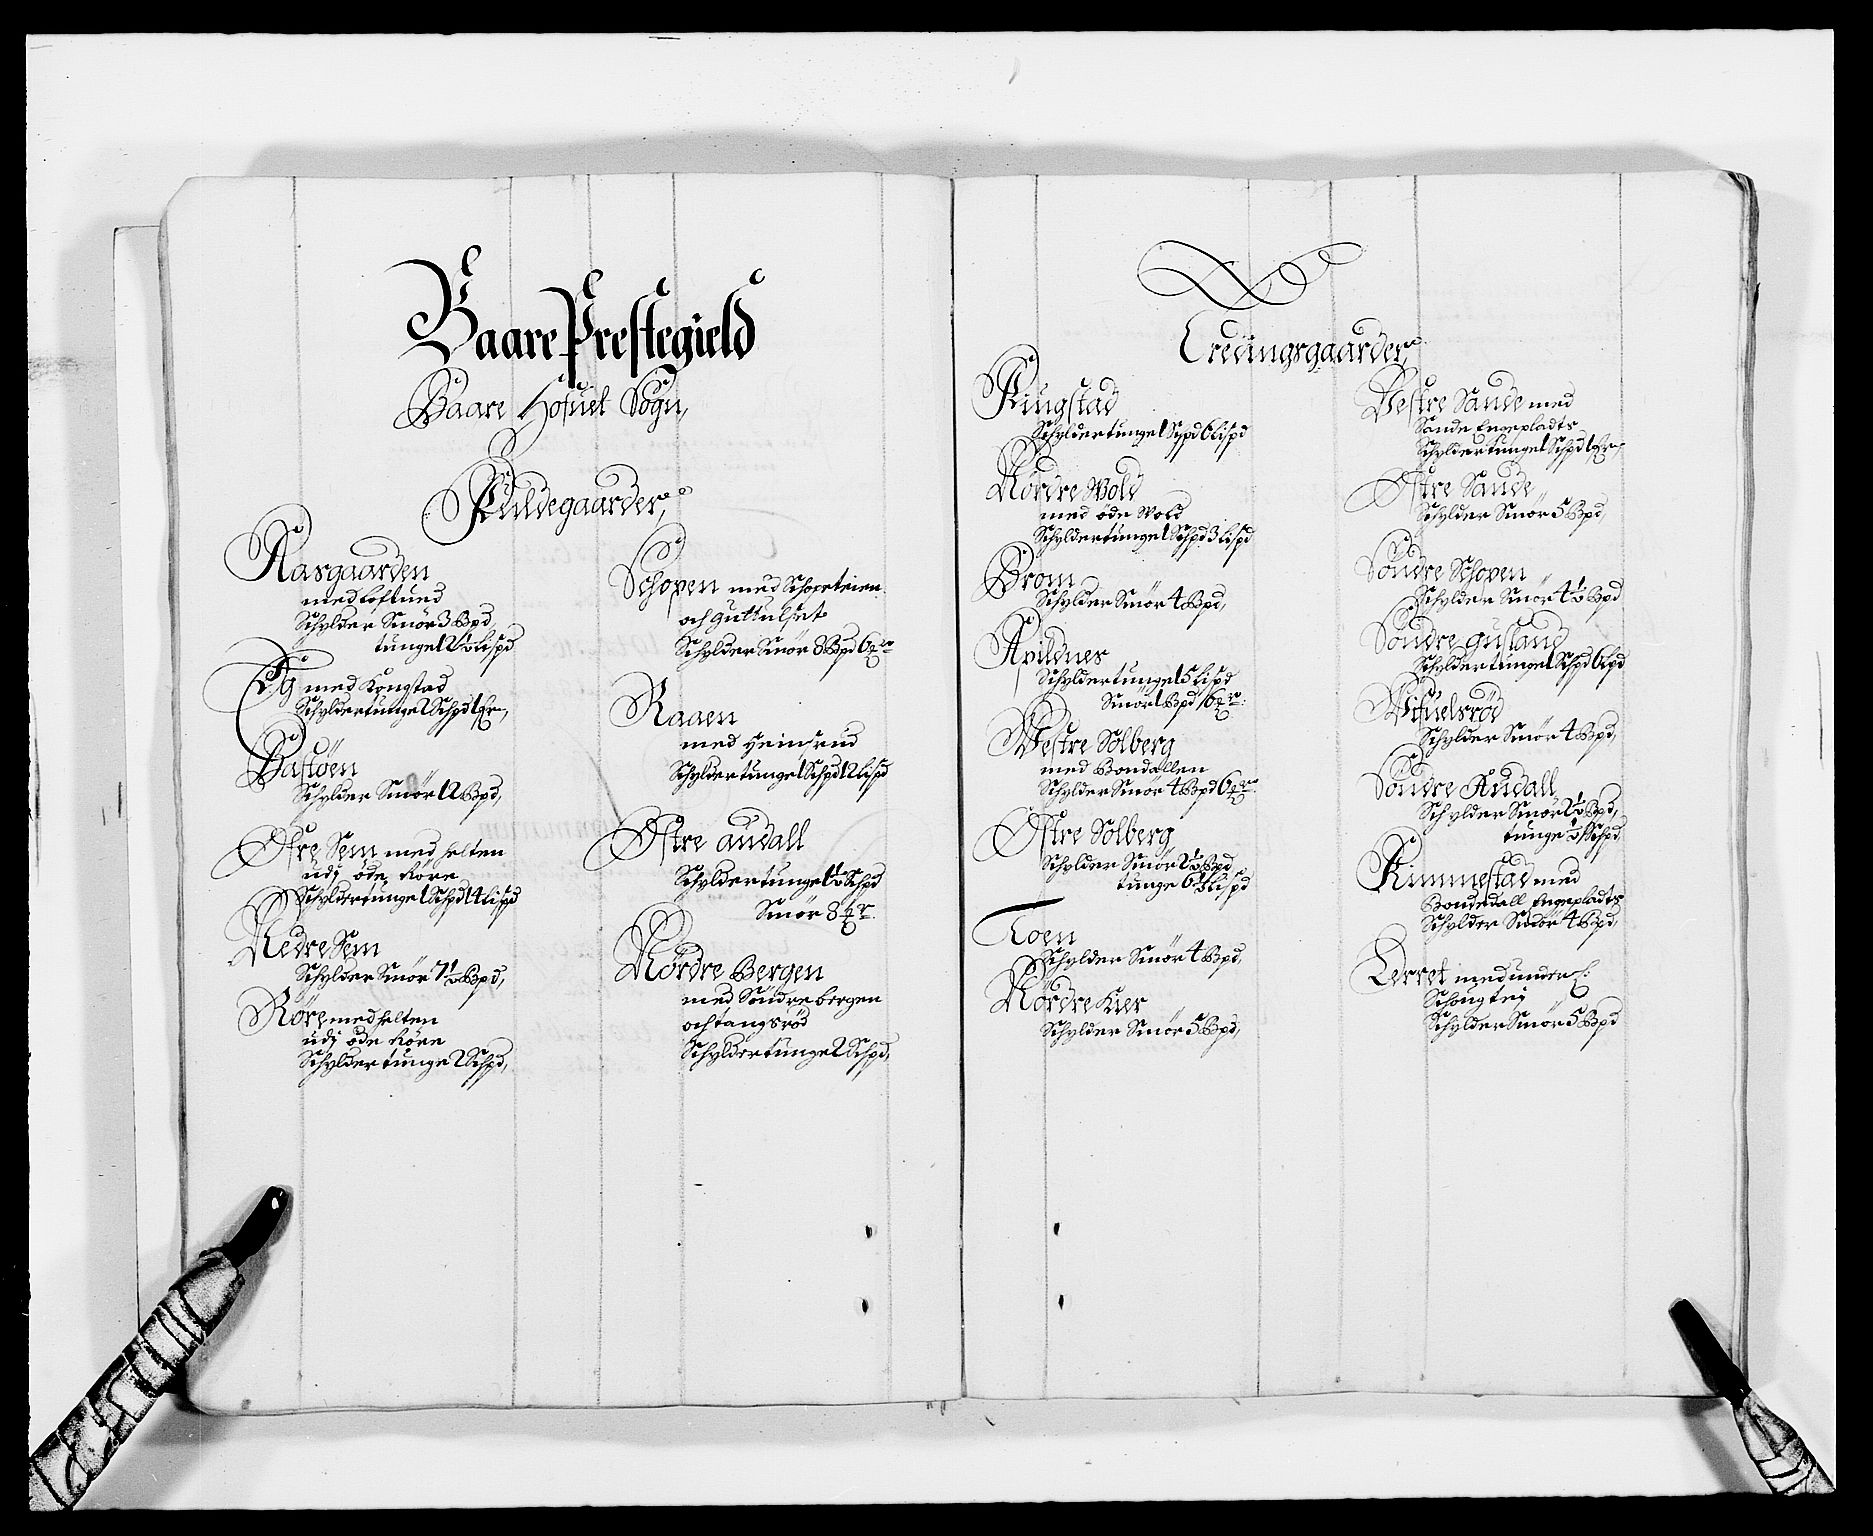 Baare Prestegield
Baare Hofuet Sogn,
Fuldegaarder,
Aasgaarden
med Loftued
Schylder Smör 3 Bpd,
tunge 12½ Lispd
Eg med Kongstad
Schylder tunge 2 Schpd 1 qr,
Bastöen
Schylder Smör 12 Bpd,
Östre Sem med helten
udj öde Röre
Schylder tunge 1 Schpd 14 Lispd
Nedre Sem
Schylder Smör 7½ Bpd,
Röre med helten
udj öde Röre
Schylder tunge 2 Schpd,
Schopen med
och
Schylder Smör 8 Bpd 6 mr
Raaen
med Heinsrud
Schylder tunge 1 Schpd 12 Lispd
Östre audall
Schylder tunge 1½ Schpd
Smör 8 mr
Nördre Bergen
med Söndre bergen
och tangsröd
Schylder tunge 2 Schpd,
Ödegaarder,
Ringstad
Schylder tunge 1 Schpd 6 Lispd
Nördre Wold
med öde Wold
Schylder tunge 1 Schpd 3 Lispd
Brom
Schylder Smör 4 Bpd,
Apildnes
Schylder tunge 15 Lispd
Smör 1 Bpd 16 mr
Westre Solberg
med Bondallen
Schylder Smör 4 Bpd 6 mr
Östre Solberg
Schylder Smör 2½ Bpd
tunge 6½ Lispd
Toen
Schylder Smör 4 Bpd,
Nördre Kier
Schylder Smör 5 Bpd,
Westre Sande med
Sande Engepladts
Schylder tunge 1 Schpd 1 qr,
Östre Sande
Schylder Smör 5 Bpd,
Söndre Schopen
Schylder Smör 4½ Bpd
Söndre gusland
Schylder tunge 1 Schpd 6 Lpd
Schylder Smör 4 Bpd,
Söndre Audall
Schylder Smör 2½ Bpd,
tunge ½ Schpd
Rimmestad med
Bondedall Engepladts
Schylder Smör 4 Bpd,
med
Schougtej
Schylder Smör 5 Bpd